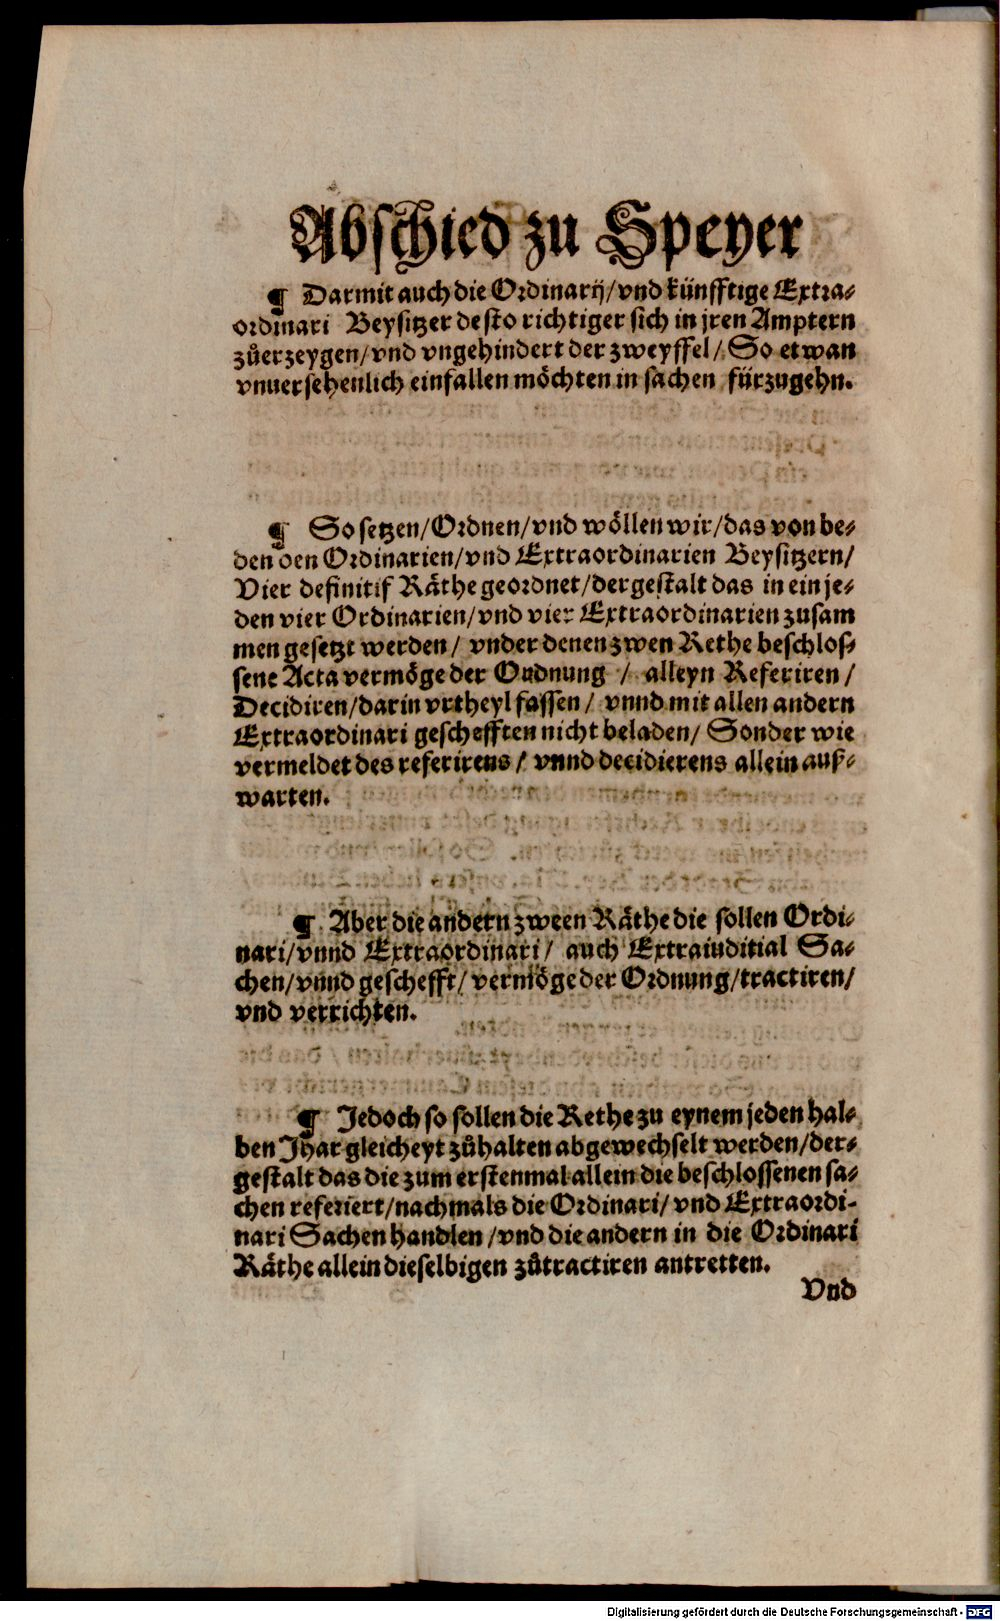 Abschied zu Speyer
¶ Darmit auch die Ordinarij/vnd künfftige Extra-
ordinari Beysitzer desto richtiger sich in jren Amptern
zůerzeygen/vnd vngehindert der zweyffel/ So etwan
vnuersehenlich einfallen möchten in sachen fürzugehn.
¶ So setzen/Ordnen/vnd wöllen wir/das von be-
den den Ordinarien/vnd Extraordinarien Beysitzern/
Vier definitif Räthe geordnet/dergestalt das in ein je-
den vier Ordinarien/vnd vier Extraordinarien zusam
men gesetzt werden/ vnder denen zwen Rethe beschlos-
sene Acta vermöge der Ordnung / alleyn Referiren/
Decidiren/darin vrtheyl fassen/ vnnd mit allen andern
Extraordinari geschefften nicht beladen/ Sonder wie
vermeldet des referirens/ vnnd decidierens allein auß-
warten.
¶ Aber die andern zween Räthe die sollen Ordi-
nari/vnnd Extraordinari/ auch Extraiuditial Sa-
chen/vnnd geschefft/ vermöge der Ordnung/tractiren/
vnd verrichten.
¶ Jedoch so sollen die Rethe zu eynem jeden hal-
ben Jhar gleicheyt zůhalten abgewechselt werden/der-
gestalt das die zum erstenmal allein die beschlossenen sa-
chen referiert/nachmals die Ordinari/ vnd Extraordi-
nari Sachen handlen/vnd die andern in die Ordinari
Räthe allein dieselbigen zůtractiren antretten.
Vnd
Digitalisierung gefördert durch die Deutsche Forschungsgemeinschaft - DFG